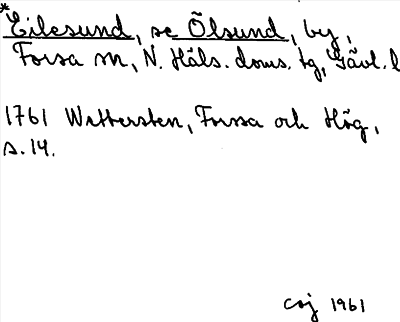 *Eilesund, se Ölsund, by,
Forsa sn, N. Häls. doms. tg, Gävl. l
1761 Wettersten, Forssa och Hög,
s. 14.
csj 1961